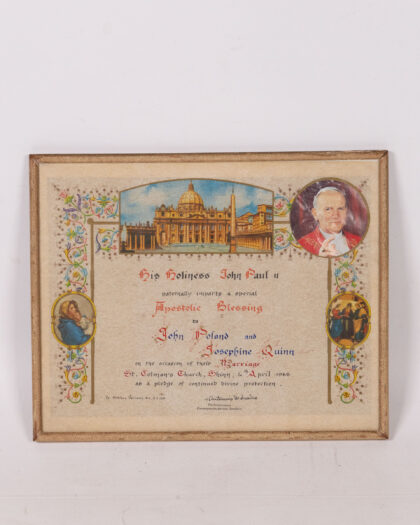 His Holiness John Paul II
paternally imparts a special
Apostolic Blessing
to
John Poland and
Josephine Quinn
on the occasion of their Marriage
St. Colman's Church, April
as a pledge of continued divine protection.